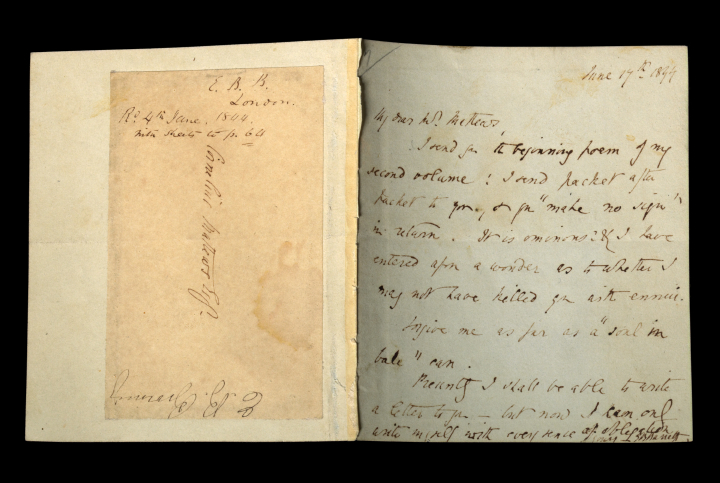 E. B. B.
London.
Rd. 4th June, 1844.
with sheets to p. 64
Cornelius Mathews Esqr.
June 17th 1844
My dear Mr. Mathews
I send you the beginning poem of my
second volume! I send packet after
packet to you, & you "make no sign"
in return. It is ominous! & I have
entered upon a wonder as to whether I
may not have killed you with ennui.
Forgive me as far as a "soul in
bale" can.
Presently I shall be able to write
a letter to you — but now I can only
write myself with every sense of obligation